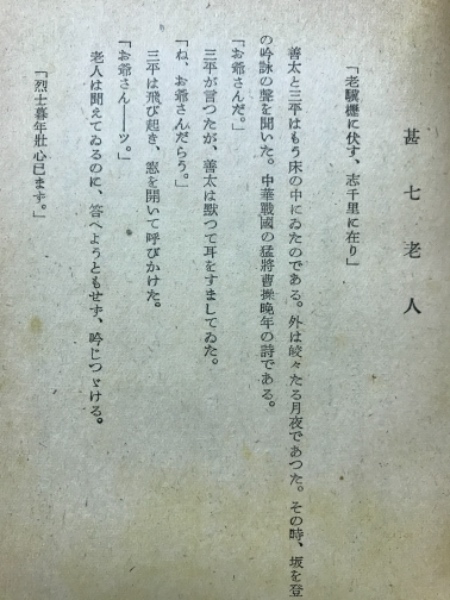 甚七老人
「老驥櫪に伏す、志千里に在り」
善太と三平はもう床の中にゐたのである。外は皎々たる月夜であつた。その時、坂を登
の吟詠の聲を聞いた。中華戰國の猛將曹操晩年の詩である。
「お爺さんだ。」
三平が言つたが、善太は默つて耳をすましてゐた。
「ね、お爺さんだらう。」
三平は飛び起き、窓を開いて呼びかけた。
「お爺さん――ッ。」
老人は聞えてゐるのに、答へようともせず、吟じつゞける。
「烈士暮年壯心已まず。」